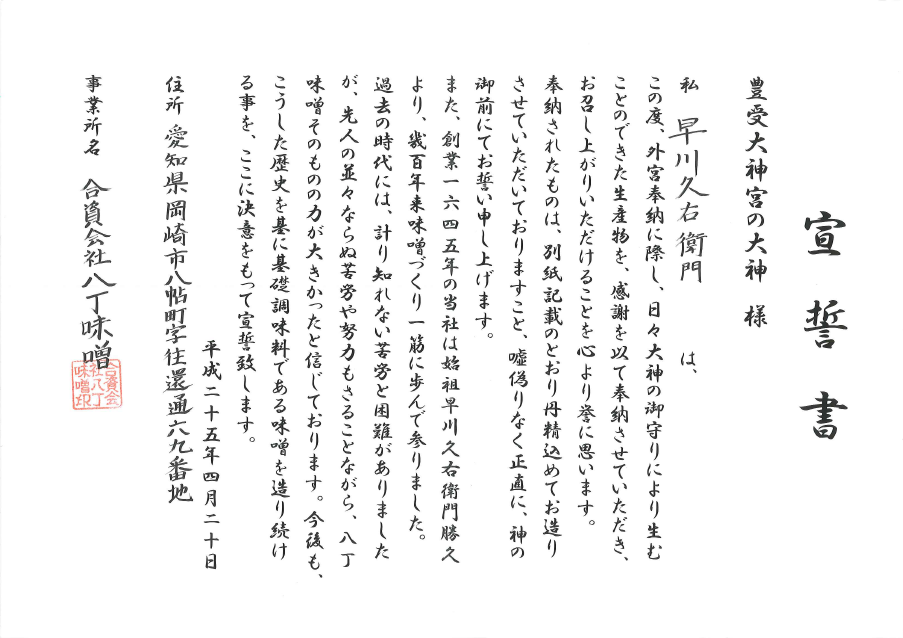 宣誓書
豊受大神宮の大神 様
私 早川久右衛門 は、
この度、外宮奉納に際し、日々大神の御守りにより生む
ことのできた生産物を、感謝を以て奉納させていただき、
お召し上がりいただけることを心より誉に思います。
奉納されたものは、別紙記載のとおり丹精込めてお造り
させていただいておりますこと、嘘偽りなく正直に、神の
御前にてお誓い申し上げます。
また、創業一六四五年の当社は始祖早川久右衛門勝久
より、幾百年来味噌づくり一筋に歩んで参りました。
過去の時代には、計り知れない苦労と困難がありました
が、先人の並々ならぬ苦労や努力もさることながら、八丁
味噌そのものの力が大きかったと信じております。今後も、
こうした歴史を基に基礎調味料である味噌を造り続け
る事を、ここに決意をもって宣誓致します。
平成二十五年四月二十日
住所 愛知県岡崎市八帖町字往還通六九番地
事業所名 合資会社八丁味噌
合資会
社八丁
味噌印